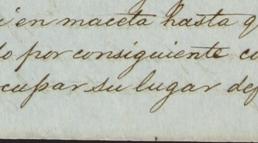 en maceta hasta q
do por consiguiente co
ocupar su lugar def